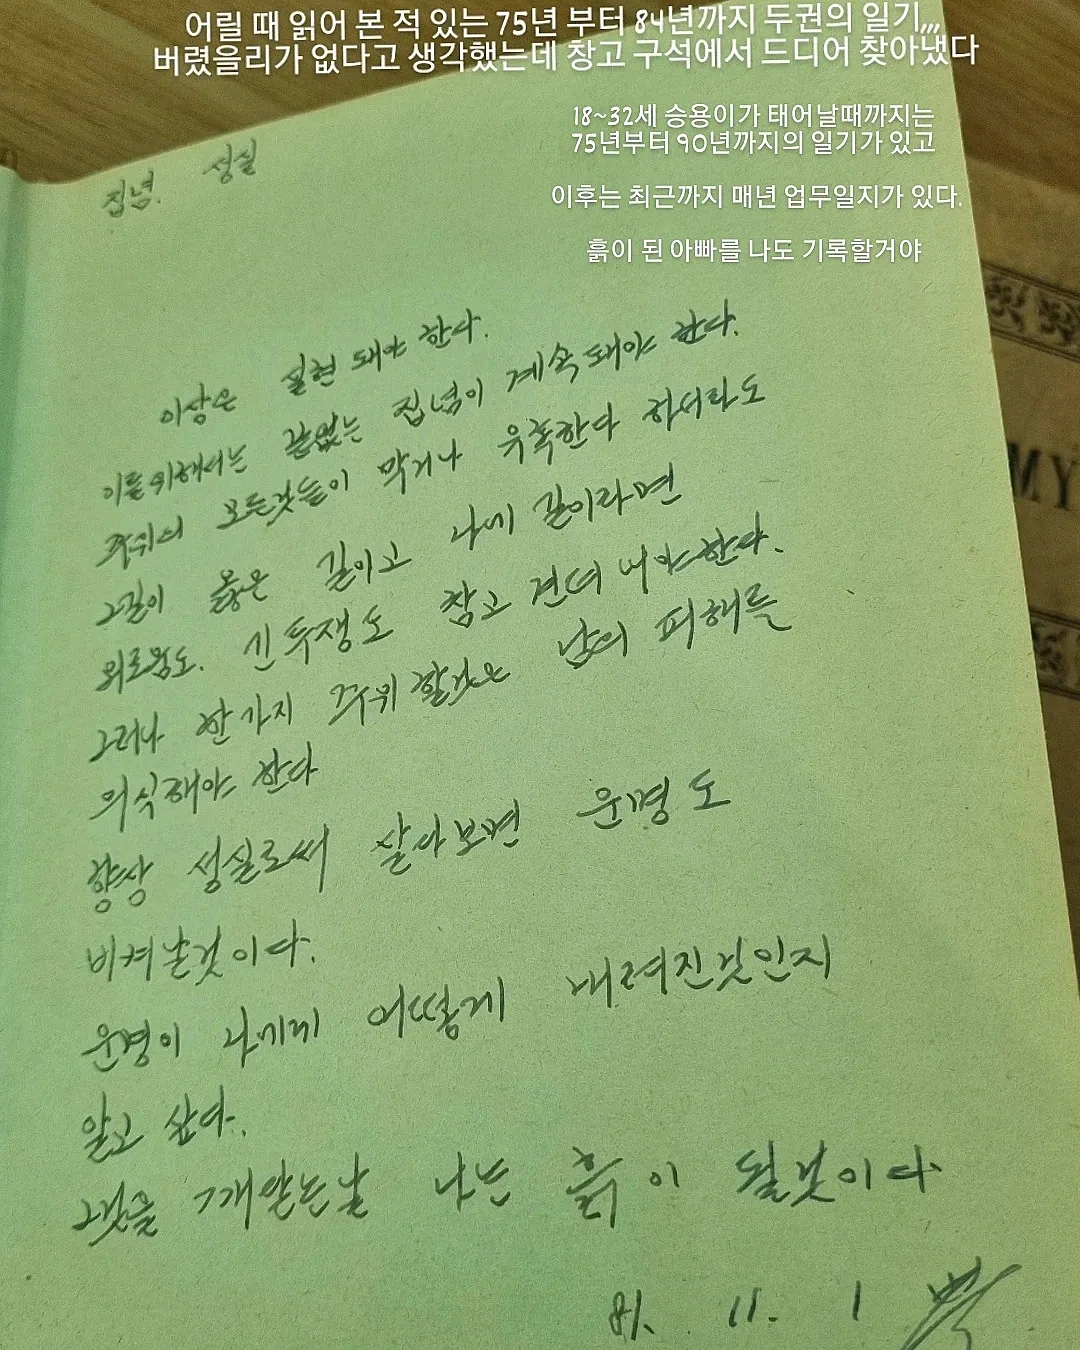 어릴 때 읽어 본 적 있는 75년 부터 84년까지 두권의 일기,,,
버렸을리가 없다고 생각했는데 창고 구석에서 드디어 찾아냈다
18~32세 승용이가 태어날때까지는
75년부터 90년까지의 일기가 있고
이후는 최근까지 매년 업무일지가 있다.
흙이 된 아빠를 나도 기록할거야
집념. 성실
이상은 실현 돼야 한다.
이를위해서는 끝없는 집념이 계속돼야 한다.
주위의 모든것들이 막거나 유혹한다 하더라도
그길이 옳은 길이고 나에 길이라면
외로움도. 긴투쟁도 참고 견뎌 내야한다.
그러나 한가지 주위할것은 남의 피해를
의식해야 한다
항상 성실로써 살다보면 운명도
비켜날것이다.
운명이 나에게 어떻게 내려진것인지
알고 싶다.
그것을 깨닫는날 나는 흙이 될것이다
81. 11. 1
MY